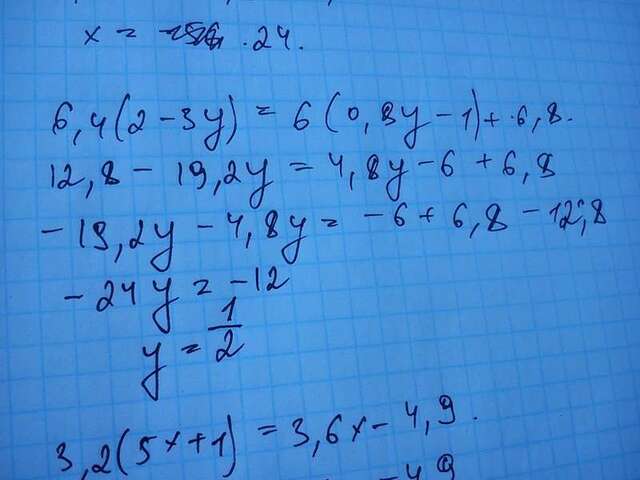 x = 24.
6,4(2-3y) = 6(0,8y-1)+6,8.
12,8 - 19,2y = 4,8y-6+6,8
-19,2y-4,8y = -6+6,8-12,8
-24y = -12
y = 1/2
3,2(5x+1) = 3,6x-4,9.
-49